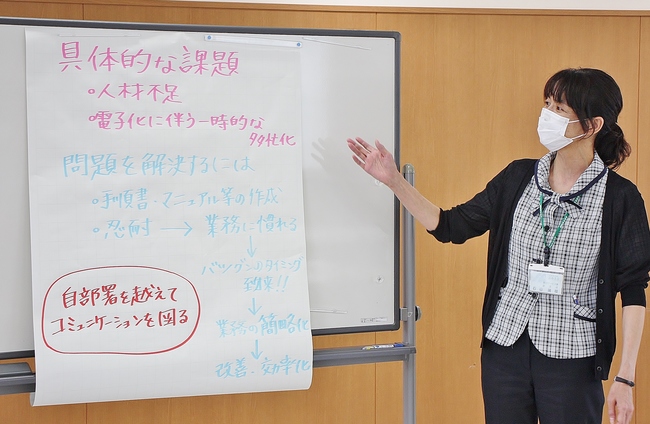 具体的な課題
・人材不足
・電子化に伴う一時的な
多忙化
問題を解決するには
・手順書・マニュアル等の作成
・忍耐 → 業務に慣れる
↓
バツグンのタイミング
到来!!
↓
業務の簡略化
↓
改善・効率化
自部署を越えて
コミュニケーションを図る